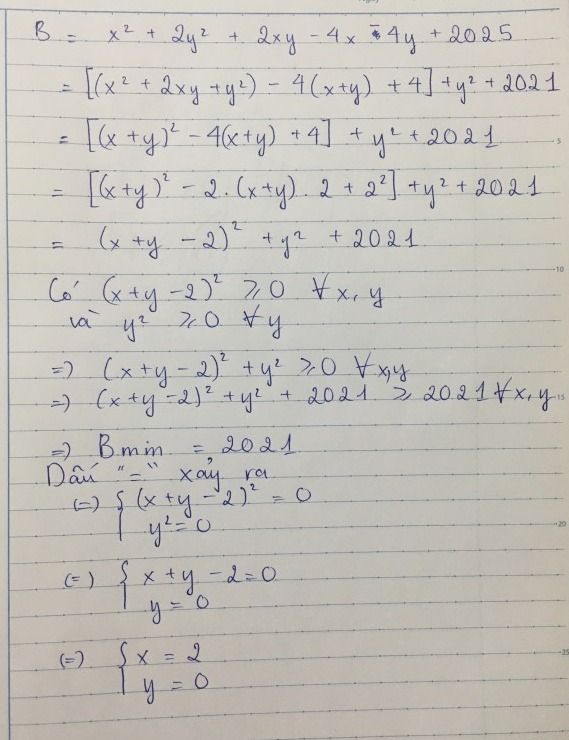 B = x² + 2y² + 2xy - 4x - 4y + 2025
= [(x² + 2xy + y²) - 4(x+y) + 4] + y² + 2021
= [(x+y)² - 4(x+y) + 4] + y² + 2021
= [(x+y)² - 2.(x+y).2 + 2²] + y² + 2021
= (x+y-2)² + y² + 2021
Có (x+y-2)² ⩾ 0 ∀x, y
và y² ⩾ 0 ∀y
=) (x+y-2)² + y² ⩾ 0 ∀x,y
=) (x+y-2)² + y² + 2021 ⩾ 2021 ∀x, y
=) Bmin = 2021
Dấu "=" xảy ra
(=) { (x+y-2)² = 0
y² = 0
(=) { x+y-2=0
y = 0
(=) { x = 2
y = 0
5
10
15
20
25